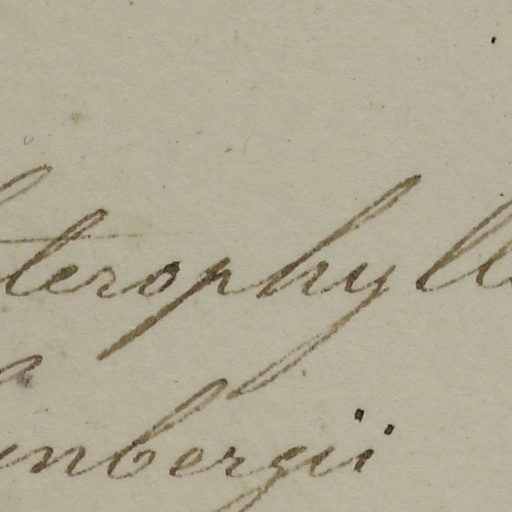 terophyll
a
nbergii